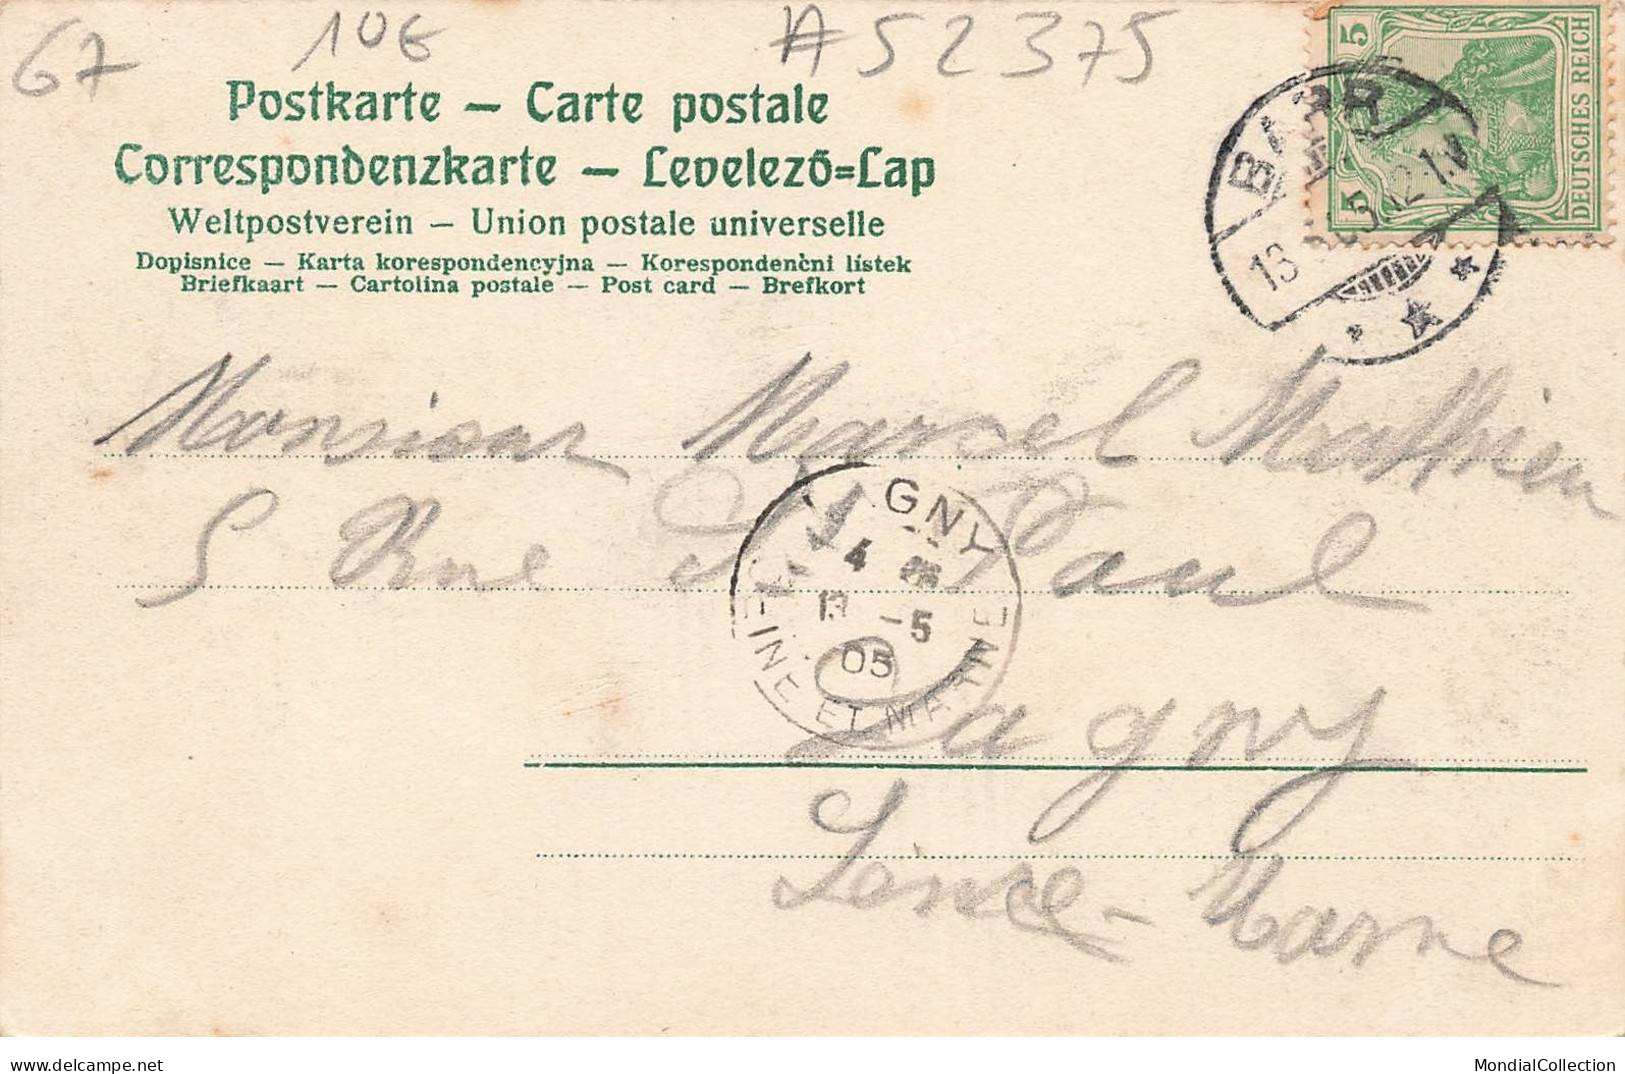 67 10€ A52375
5 DEUTSCHES REICH 5
Postkarte – Carte postale
Correspondenzkarte – Levelező=Lap
Weltpostverein – Union postale universelle
Dopisnice – Karta korespondencyjna – Korespondenčni lístek
Briefkaart – Cartolina postale – Post card – Brefkort
BARR
13 05 12-1 N
Monsieur Marcel Mathieu
5 Rue St Paul
LAGNY
4
13 -5
05
SEINE ET MARNE
Lagny
Seine-Marne
delcampe.net
MondialCollection